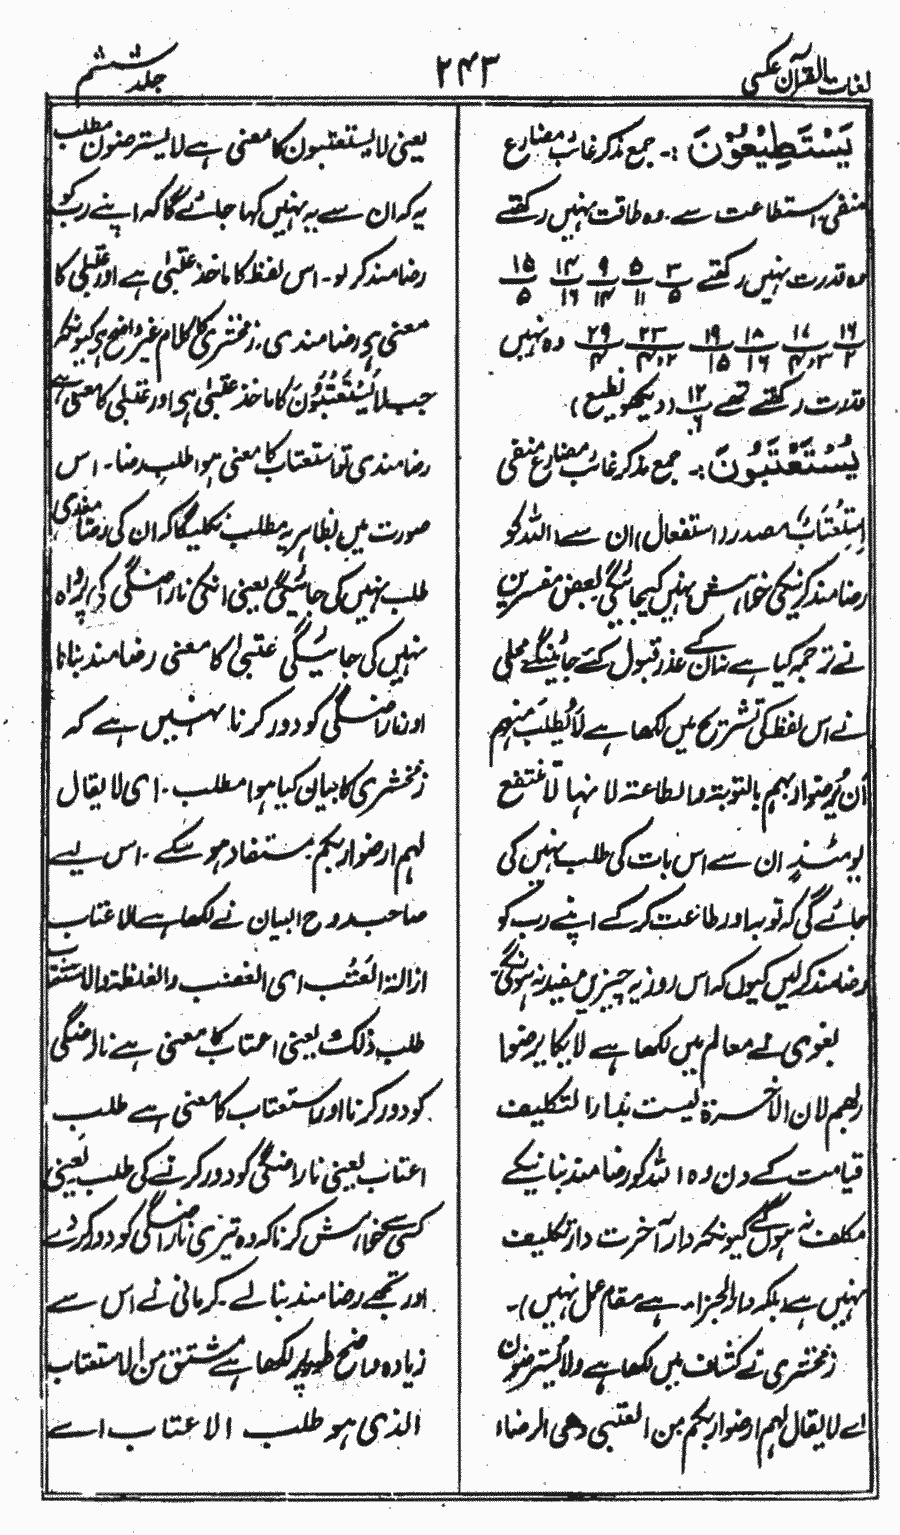 لغات القرآن عکسی
۲۴۳
جلد ششم
يَسْتَطِيْعُوْنَ :۔ جمع مذکر غائب مضارع
منفی استطاعت سے۔ وہ طاقت نہیں رکھتے
وہ قدرت نہیں رکھتے ۳/۵ ۵/۱۱ ۹/۱۴ ۱۴/۱۶ ۱۵/۵
۱۶/۲ ۱۷/۳و۴ ۱۸/۱۶ ۱۹/۱۵ ۲۳/۲و۴ ۲۹/۴ وہ نہیں
قدرت رکھتے تھے ۱۲/۶ (دیکھو نطیع)
يُسْتَعْتَبُوْنَ :۔ جمع مذکر غائب مضارع منفی
اِسْتِعْتَابٌ مصدر (استفعال) ان سے اللہ کو
رضامند کرنیکی خواہش نہیں کیجائیگی بعض مفسرین
نے ترجمہ کیا ہے نہ ان کے عذر قبول کئے جائینگے محلی
نے اس لفظ کی تشریح میں لکھا ہے لَا يُطلَبُ منہم
اَن يُرضوا ربہم بالتوبۃ والطاعۃ لا نہا لَا تنتفع
یومئذٍ ان سے اس بات کی طلب نہیں کی
جائے گی کہ توبہ اور طاعت کر کے اپنے رب کو
رضامند کر لیں کیوں کہ اس روز یہ چیزیں مفید نہ ہونگی
بغوی نے معالم میں لکھا ہے لا یکا یرضوا
ربھم لان الآخرۃ لیست بدار التکلیف
قیامت کے دن وہ اللہ کو رضامند بنا نیکے
مکلف نہ ہوں گے کیونکہ دار آخرت دار تکلیف
نہیں ہے (بلکہ دار الجزا۔ ہے مقام عمل نہیں)۔
زمخشری نے کشاف میں لکھا ہے ولا یسترضون
اے لا یقال لہم ارضوا ربکم من العتبی وھی الرضاء
یعنی لا یستعتبون کا معنی ہے لا یسترضون مطلب
یہ کہ ان سے یہ نہیں کہا جائے گا کہ اپنے رب کو
رضامند کر لو۔ اس لفظ کا ماخذ عتبیٰ ہے اور عتبیٰ کا
معنی ہی رضامندی۔ زمخشری کا کلام غیر واضح ہی کیونکہ
جب لَا يُسْتَعْتَبُوْنَ کا ماخذ عتبیٰ ہی اور عتبیٰ کا معنی ہے
رضامندی تو استعتاب کا معنی ہوا طلب رضا۔ اس
صورت میں بظاہر یہ مطلب نکلیگا کہ ان کی رضامندی
طلب نہیں کی جائیگی یعنی انکی ناراضگی کی پرواہ
نہیں کی جائیگی عتبیٰ کا معنی رضامند بنانا
اور ناراضگی کو دور کرنا نہیں ہے کہ
زمخشری کا بیان کیا ہوا مطلب۔ ای لا یقال
لہم ارضوا ربکم۔ مستفاد ہو سکے۔ اس لیے
صاحب روح البیان نے لکھا ہے الاعتاب
ازالۃ العَتْب ای الغضب والغلظۃ والاستعتاب
طلب ذلک یعنی اعتاب کا معنی ہے ناراضگی
کو دور کرنا اور استعتاب کا معنی ہے طلب
اعتاب یعنی ناراضگی کو دور کرنے کی طلب یعنی
کسی سے خواہش کرنا کہ وہ تیری ناراضگی کو دور کر دے
اور تجھے رضامند بنا لے۔ کرمانی نے اس سے
زیادہ واضح طور پر لکھا ہے مشتق من الاستعتاب
الذی ھو طلب الاعتاب اے